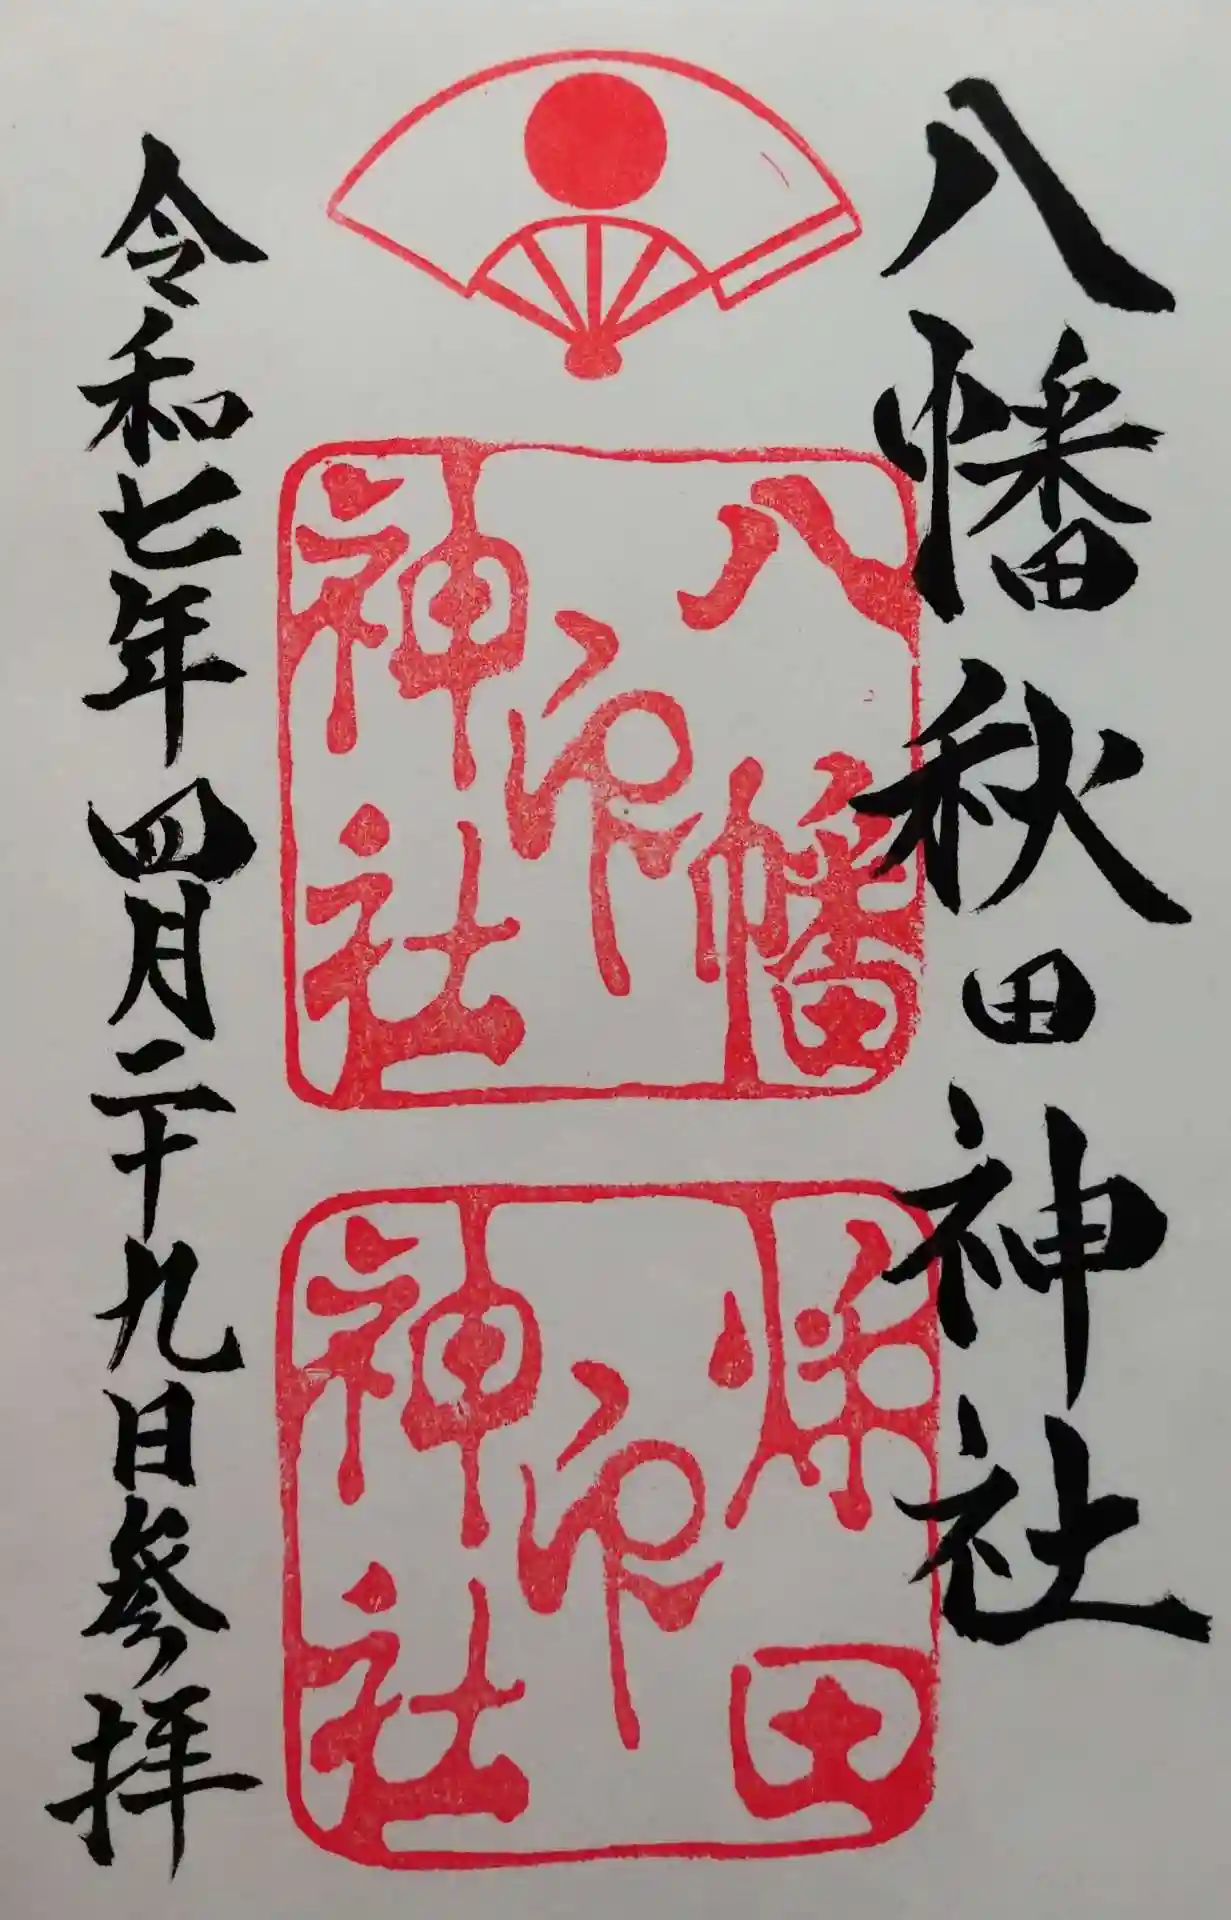 八幡秋田神社
八幡
印
神社
秌田
印
神社
令和七年四月二十九日参拝